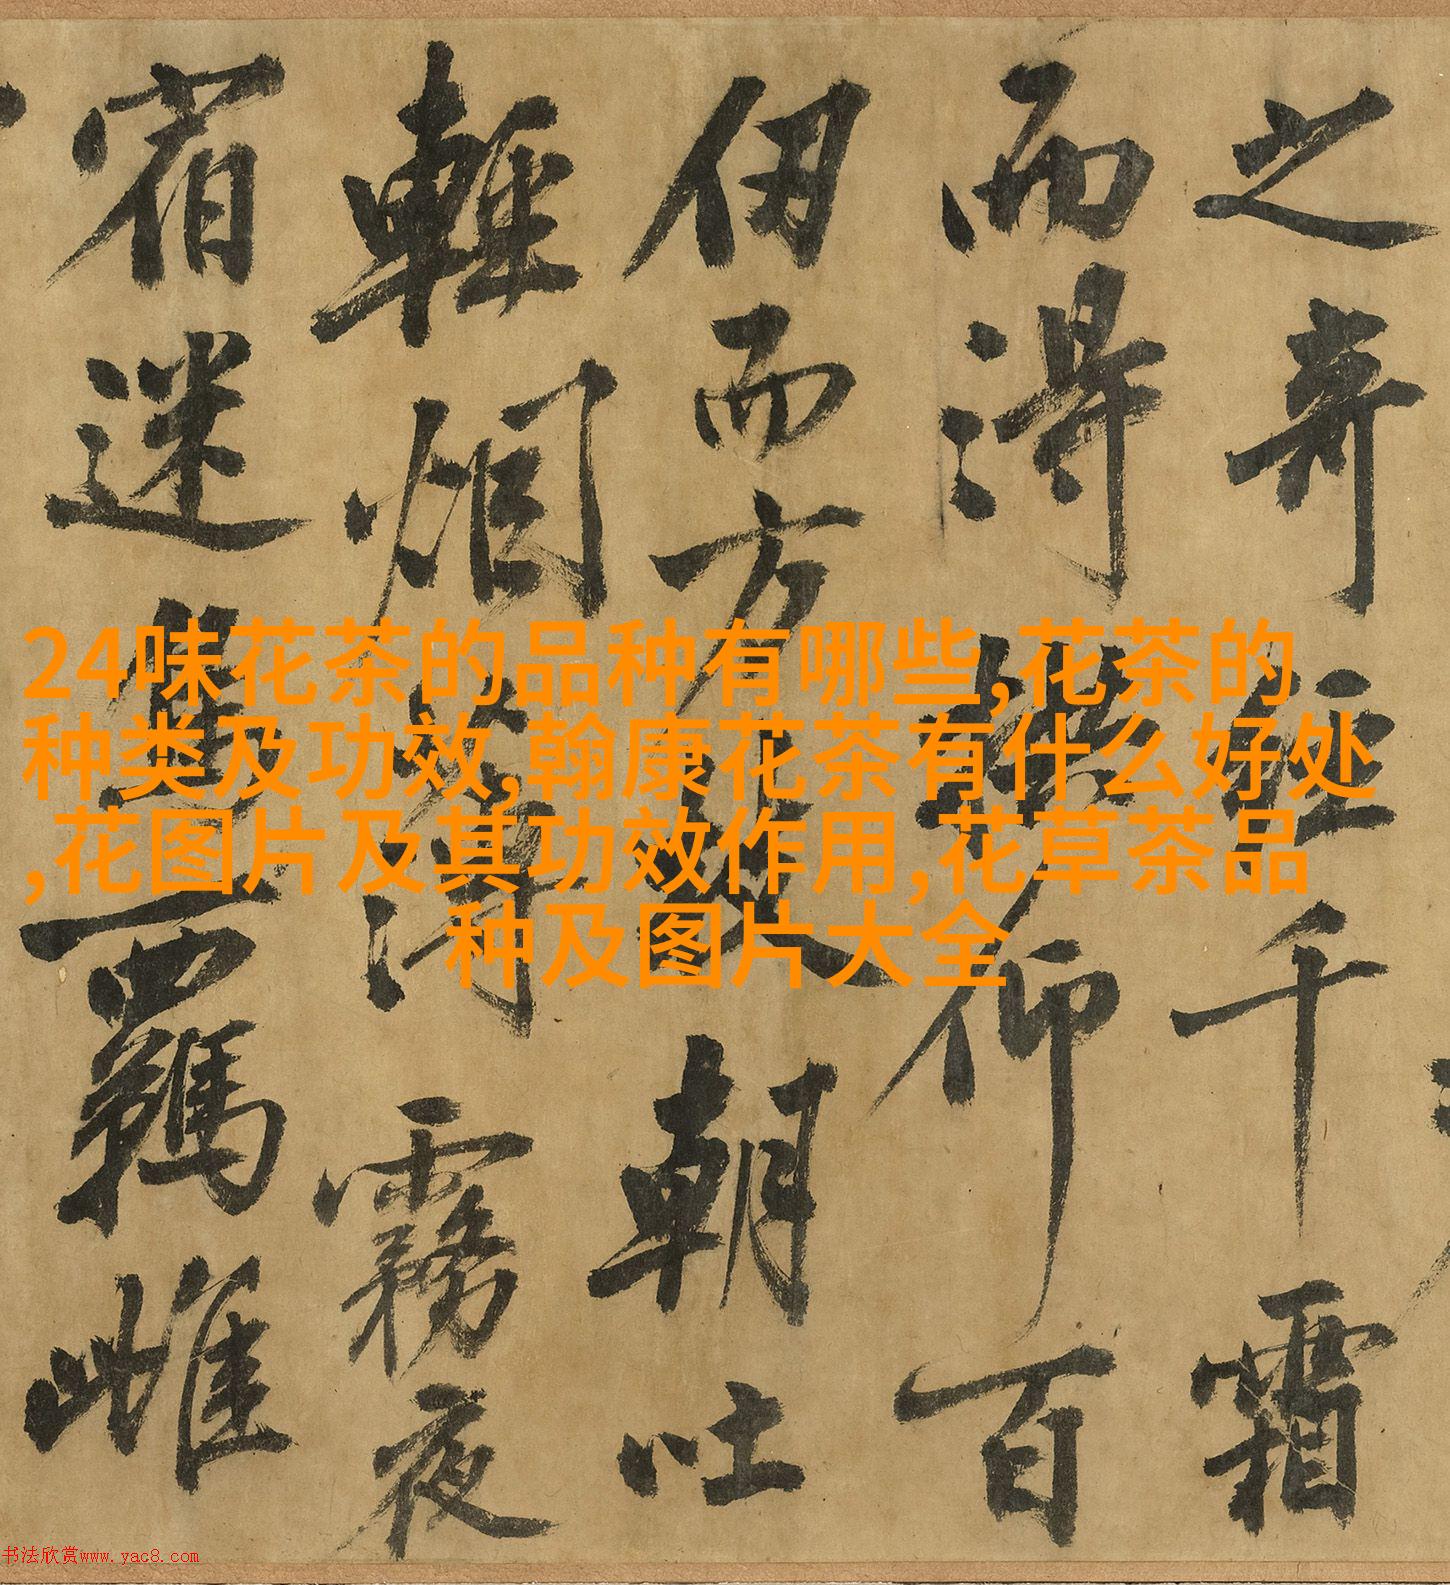 之奇經千霜
而得仰百
伊而方朝吐
輕烟薄霧夜
宿迷羈雌
24味花茶的品种有哪些,花茶的
种类及功效,翰康花茶有什么好处
,花图片及其功效作用,花草茶品
种及图片大全
书法欣赏www.yac8.com